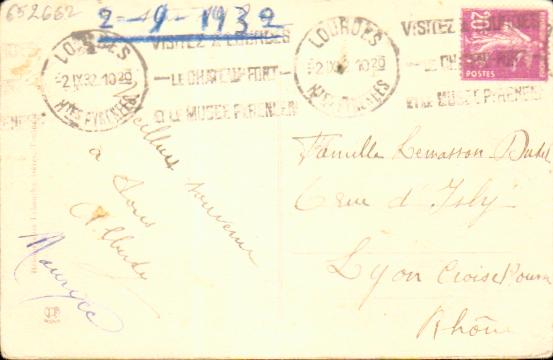 652662
2-9-1932
LOURDES
2 IX 32 10 20
Htes PYRENEES
VISITEZ A LOURDES
LE CHATEAU FORT
ET LE MUSEE PYRENEEN
LOURDES
2 IX 32 10 20
Htes PYRENEES
VISITEZ A LOURDES
LE CHATEAU FORT
ET LE MUSEE PYRENEEN
20c
POSTES
Meilleur souvenir
à tous
Maurice
Famille Lemasson
6 rue d'Isly
Lyon Croise Rousse
Rhône